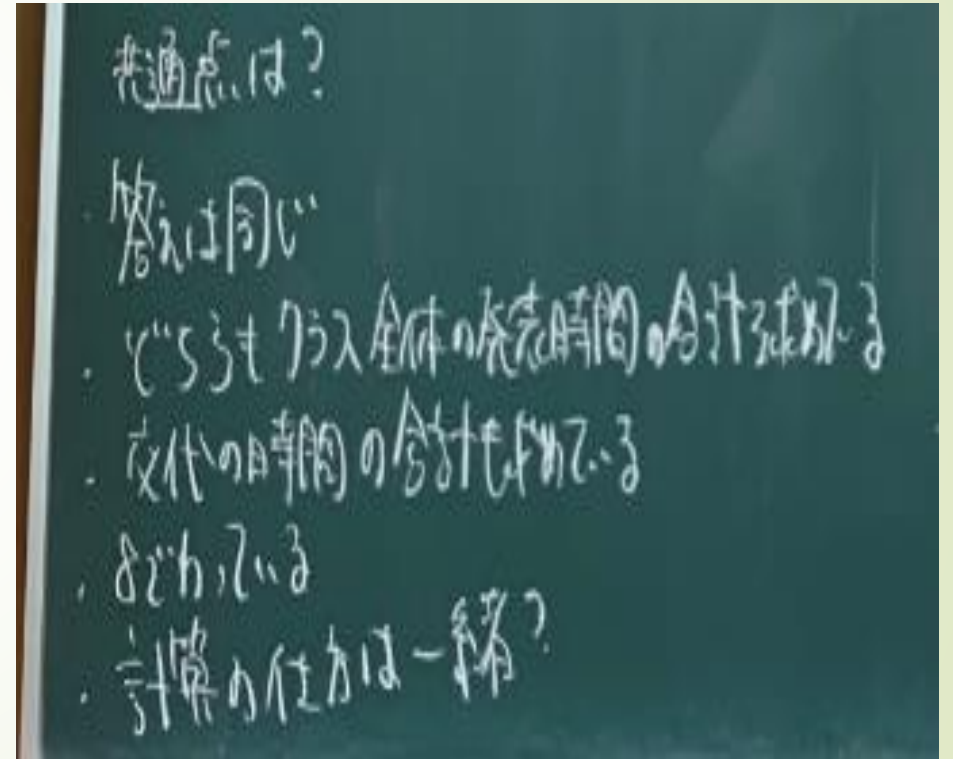 共通点は?
・答えは同じ
・どちらもクラス全体の発売時間の合計を求めている
・交代の時間の合計も求めている
・8でわっている
・計算の仕方は一緒?